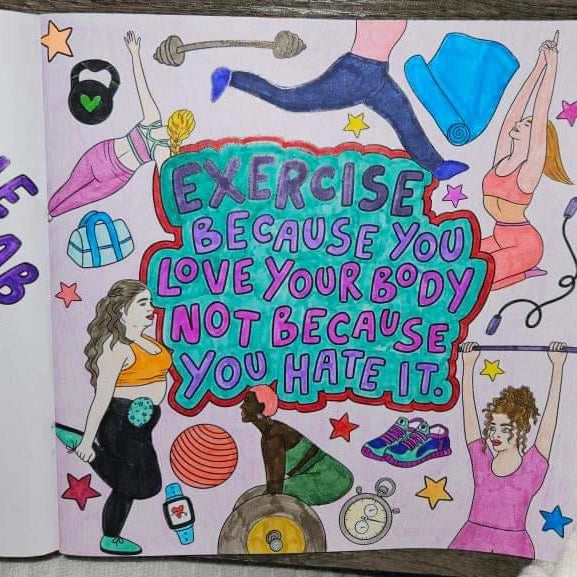 EXERCISE
BECAUSE YOU
LOVE YOUR BODY
NOT BECAUSE
YOU HATE IT.